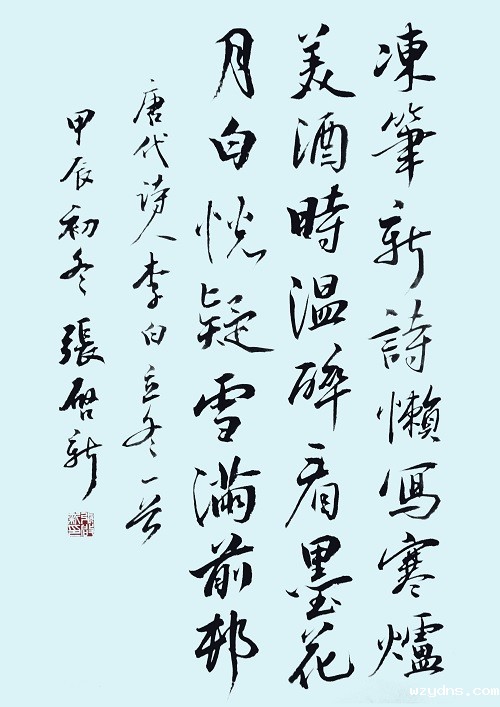 凍筆新詩懶寫寒爐
美酒時温醉看墨花
月白恍疑雪滿前邨
唐代詩人李白立冬一首
甲辰初冬張啓新
wzydns.com